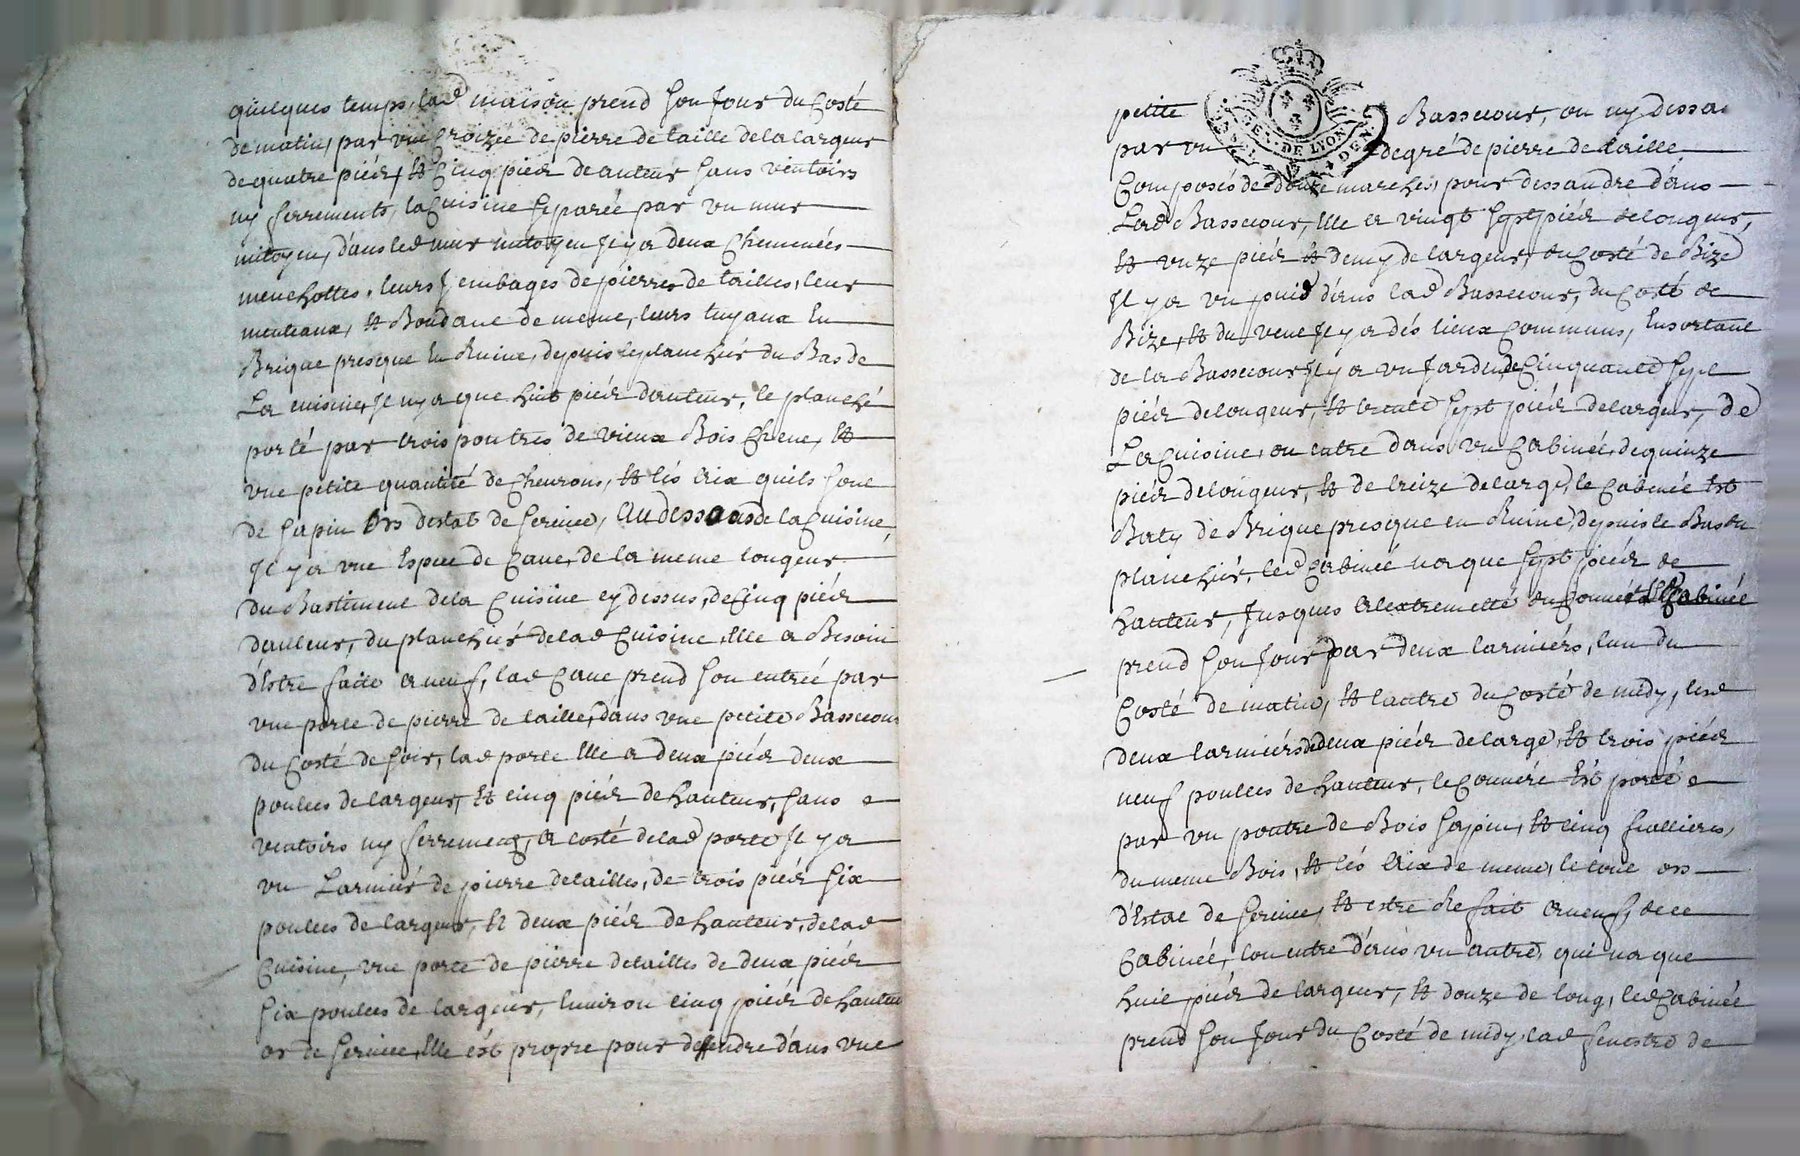 quelques temps, lad maison prend son Jour du Costé
de matin, par vne Croizée de pierre de taille de la largeur
de quatre piéd, Et Cinq piéd de auteur sans ventoirs
ny ferrements, la Cuisine separée par vn mur
mitoyen, dans led mur mitoyen Il y a deux Cheminées
menchottes, leurs Jembages de pierres de tailles, leur
menteaux, Et Boudane de meme, leurs tuyaux En
Brique presque En Ruine, depuis le planchér du Bas de
La cuisine, Il ny a que huit piéd dauteur, le planché
porté par trois poutres de vieux Bois Chene, Et
vne petite quantité de Cheurons, Et lés Aix quils sont
de sapin ors destat de seruice, Au dessous de la Cuisine
Il y a vne Espece de Caue, de la meme longeur
du Bastiment de la Cuisine cy dessus, de Cinq piéd
dauteur, du planchér de lad Cuisine, Elle a Besoin
d'Estre faite a neuf, lad Caue prend son entrée par
vne porte de pierre de taille, dans vne petite Bassecour
du Costé de soir, lad porte Elle a deux piéd deux
poulces de largeur, Et cinq piéd de hauteur, sans
ventoirs ny ferrement, A costé de lad porte Il y a
vn Larmiér de pierre de tailles, de trois piéd six
poulces de largeur, Et deux piéd de hauteur, de lad
Cuisine, vne porte de pierre de tailles de deux piéd
six poulces de largeur, Enuiron cinq piéd de hauteur
or de seruice, Elle ést propre pour dessendre dans vne
petite Bassecour, on ny dessa
GEN. DE LYON
par vn degré de pierre de taille
Composés de douze marches, pour dessandre dans
Lad Bassecour, Elle a vingt sept piéd de longeur,
Et vnze piéd Et demy de largeur, du Costé de Bize
Il y a vn puid dans lad Bassecour, du Costé de
Bize, Et du vent Il y a dés lieux Communs, En sortant
de la Bassecour Il y a vn Jardin, de Cinquante sept
piéd de longeur, Et trente sept piéd de largeur, de
La Cuisine, on entre dans vn Cabinée, de quinze
piéd de longeur, Et de treize de large, le Cabinée Est
Baty de Brique presque en Ruine, depuis le Bas du
planchér, led Cabinée na que sept piéd de
hauteur, Jusques A lextremetté du Couuért, led Cabinée
prend son Jour par deux larmiérs, lun du
Costé de matin, Et lautre du Costé de midy, lesd
deux larmiérs de deux piéd de large, Et trois piéd
neuf poulces de hauteur, le Couuért Est porté
par vn poutre de Bois sapin, Et cinq fuillieres,
du meme Bois, Et lés Aix de meme, le tout ors
d'Estat de seruice, Et estre Refait A neuf, de ce
Cabinée, lon entre dans vn autre, qui na que
huit piéd de largeur, Et douze de long, led Cabinée
prend son Jour du Costé de midy, lad fenestre de